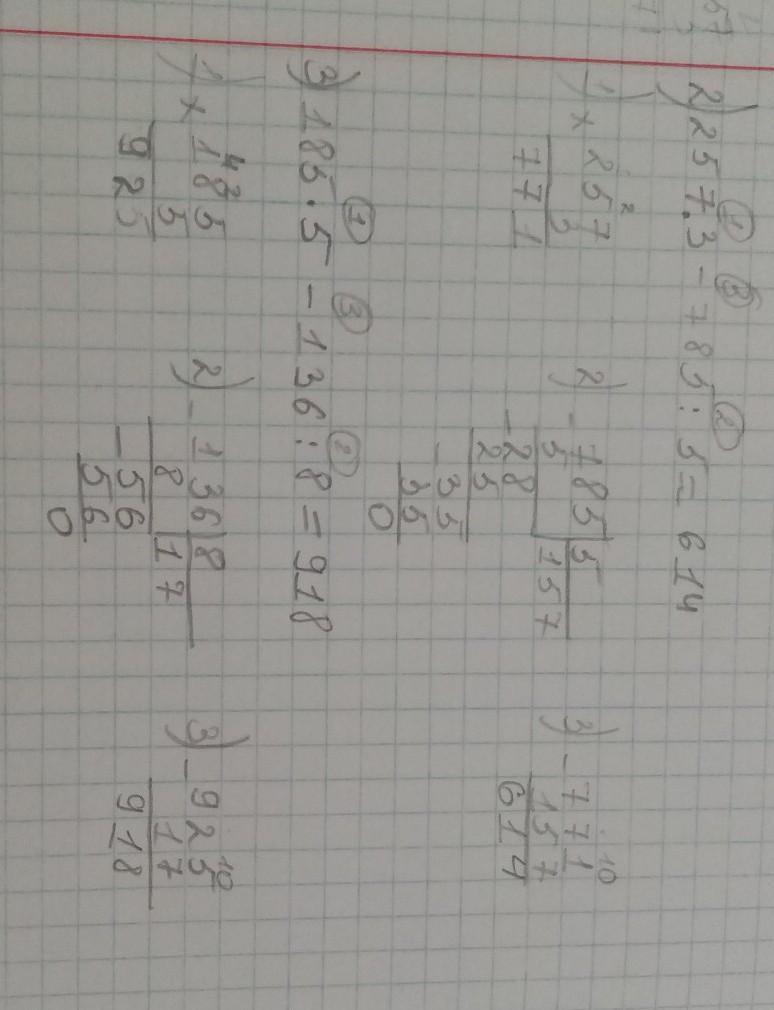 ① ③ ②
2) 257·3 - 785 : 5 = 614
2
1) × 257
3
771
2) - 785 | 5
5 | 157
- 28
25
- 35
35
0
10
3) - 771
157
614
① ③ ②
3) 185·5 - 136 : 8 = 918
42
1) × 185
5
925
2) - 136 | 8
8 | 17
- 56
56
0
10
3) - 925
17
918